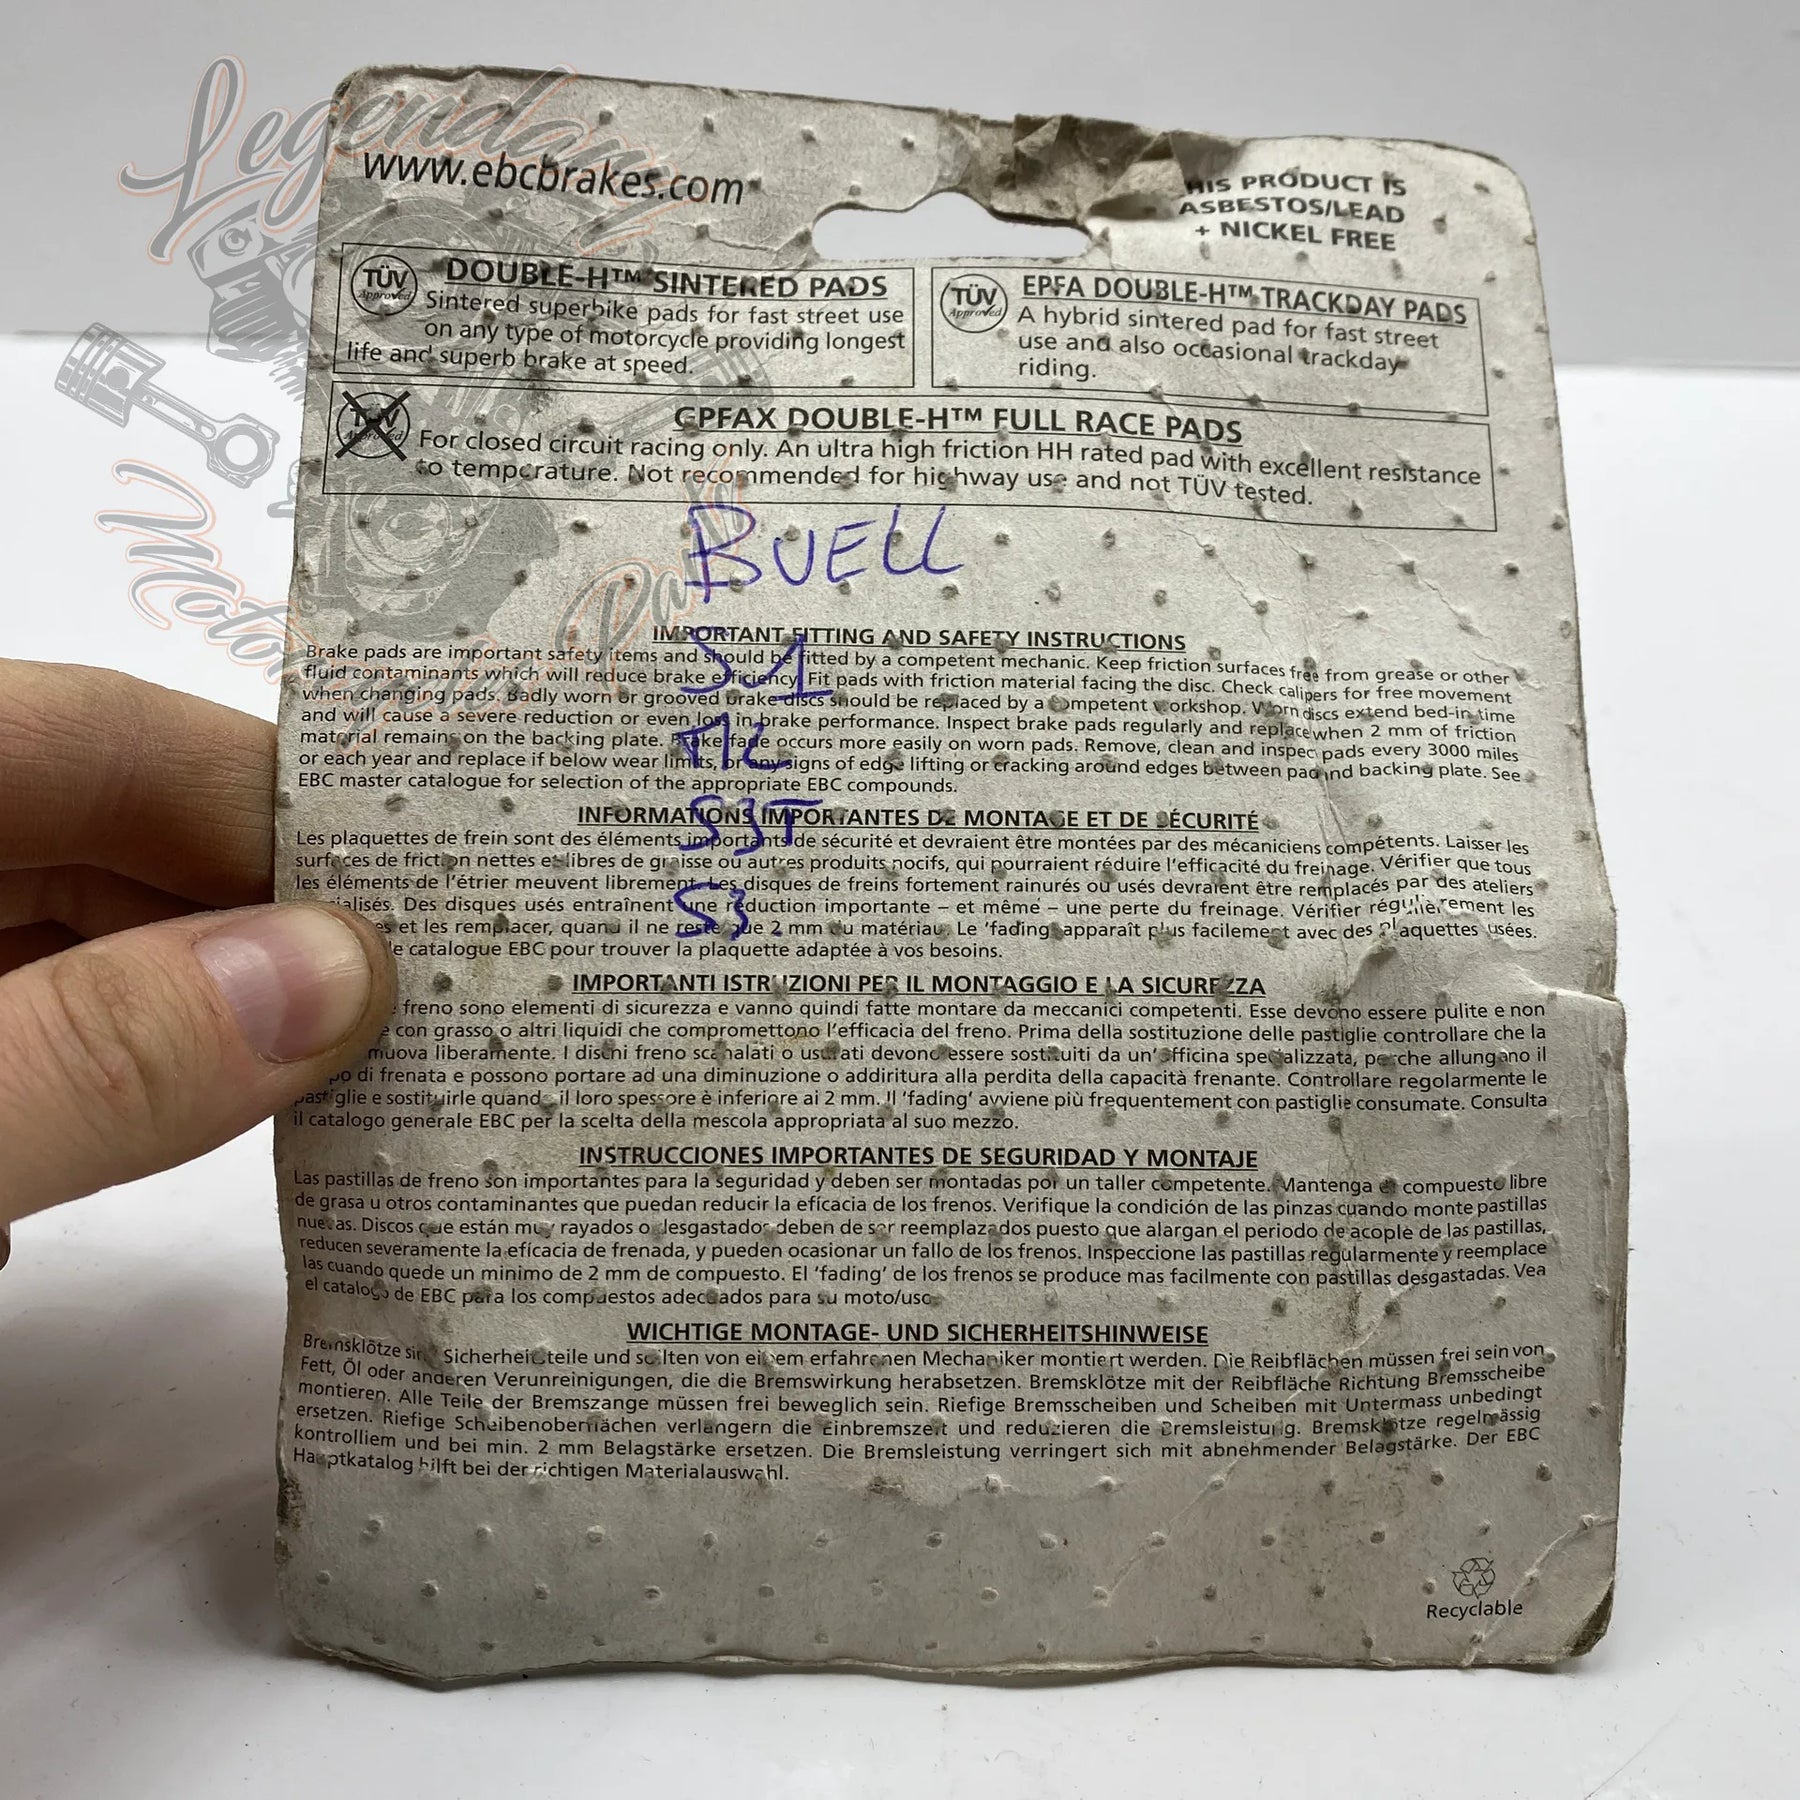 Legendary
Motorcycles Parts
www.ebcbrakes.com
HIS PRODUCT IS
ASBESTOS/LEAD
+ NICKEL FREE
TÜV
Approved
DOUBLE-H™ SINTERED PADS
Sintered superbike pads for fast street use
on any type of motorcycle providing longest
life and superb brake at speed.
TÜV
Approved
EPFA DOUBLE-H™ TRACKDAY PADS
A hybrid sintered pad for fast street
use and also occasional trackday
riding.
TÜV
Approved
GPFAX DOUBLE-H™ FULL RACE PADS
For closed circuit racing only. An ultra high friction HH rated pad with excellent resistance
to temperature. Not recommended for highway use and not TÜV tested.
BUELL
IMPORTANT FITTING AND SAFETY INSTRUCTIONS
Brake pads are important safety items and should be fitted by a competent mechanic. Keep friction surfaces free from grease or other
fluid contaminants which will reduce brake efficiency. Fit pads with friction material facing the disc. Check calipers for free movement
when changing pads. Badly worn or grooved brake discs should be replaced by a competent workshop. Worn discs extend bed-in time
and will cause a severe reduction or even loss in brake performance. Inspect brake pads regularly and replace when 2 mm of friction
material remains on the backing plate. Brake fade occurs more easily on worn pads. Remove, clean and inspec pads every 3000 miles
or each year and replace if below wear limits, or any signs of edge lifting or cracking around edges between pad and backing plate. See
EBC master catalogue for selection of the appropriate EBC compounds.
S3T
S3
INFORMATIONS IMPORTANTES DE MONTAGE ET DE SÉCURITÉ
Les plaquettes de frein sont des éléments importants de sécurité et devraient être montées par des mécaniciens compétents. Laisser les
surfaces de friction nettes et libres de graisse ou autres produits nocifs, qui pourraient réduire l'efficacité du freinage. Vérifier que tous
les éléments de l'étrier meuvent librement. Les disques de freins fortement rainurés ou usés devraient être remplacés par des ateliers
ialisés. Des disques usés entraînent une réduction importante – et même – une perte du freinage. Vérifier régulièrement les
es et les remplacer, quand il ne reste que 2 mm du matériau. Le 'fading' apparaît plus facilement avec des plaquettes usées.
le catalogue EBC pour trouver la plaquette adaptée à vos besoins.
IMPORTANTI ISTRUZIONI PER IL MONTAGGIO E LA SICUREZZA
freno sono elementi di sicurezza e vanno quindi fatte montare da meccanici competenti. Esse devono essere pulite e non
con grasso o altri liquidi che compromettono l'efficacia del freno. Prima della sostituzione delle pastiglie controllare che la
muova liberamente. I dischi freno scanalati o usurati devono essere sostituiti da un'officina specializzata, perche allungano il
po di frenata e possono portare ad una diminuzione o addiritura alla perdita della capacità frenante. Controllare regolarmente le
pastiglie e sostituirle quando il loro spessore è inferiore ai 2 mm. Il 'fading' avviene più frequentemente con pastiglie consumate. Consulta
il catalogo generale EBC per la scelta della mescola appropriata al suo mezzo.
INSTRUCCIONES IMPORTANTES DE SEGURIDAD Y MONTAJE
Las pastillas de freno son importantes para la seguridad y deben ser montadas por un taller competente. Mantenga el compuesto libre
de grasa u otros contaminantes que puedan reducir la eficacia de los frenos. Verifique la condición de las pinzas cuando monte pastillas
nuevas. Discos que están muy rayados o desgastados deben de ser reemplazados puesto que alargan el periodo de acople de las pastillas,
reducen severamente la eficacia de frenada, y pueden ocasionar un fallo de los frenos. Inspeccione las pastillas regularmente y reemplace
las cuando quede un minimo de 2 mm de compuesto. El 'fading' de los frenos se produce mas facilmente con pastillas desgastadas. Vea
el catalogo de EBC para los compuestos adecuados para su moto/uso
WICHTIGE MONTAGE- UND SICHERHEITSHINWEISE
Bremsklötze sind Sicherheitsteile und sollten von einem erfahrenen Mechaniker montiert werden. Die Reibflächen müssen frei sein von
Fett, Öl oder anderen Verunreinigungen, die die Bremswirkung herabsetzen. Bremsklötze mit der Reibfläche Richtung Bremsscheibe
montieren. Alle Teile der Bremszange müssen frei beweglich sein. Riefige Bremsscheiben und Scheiben mit Untermass unbedingt
ersetzen. Riefige Scheibenoberflächen verlängern die Einbremszeit und reduzieren die Bremsleistung. Bremsklötze regelmässig
kontrolliem und bei min. 2 mm Belagstärke ersetzen. Die Bremsleistung verringert sich mit abnehmender Belagstärke. Der EBC
Hauptkatalog hilft bei der richtigen Materialauswahl.
Recyclable